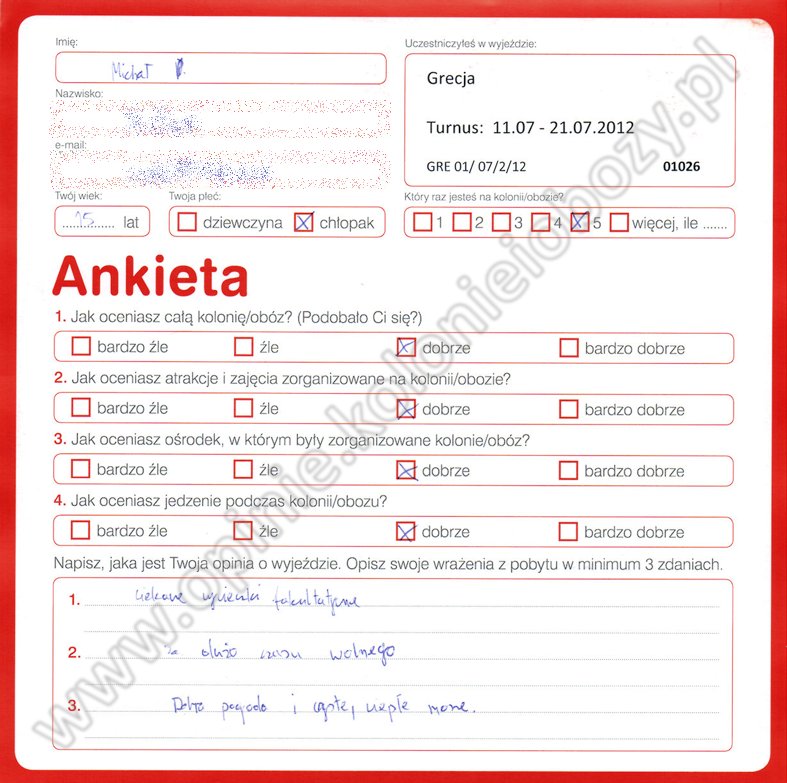 Imię:
Michał P.
Uczestniczyłeś w wyjeździe:
Grecja
Turnus: 11.07 - 21.07.2012
GRE 01/ 07/2/12 01026
Nazwisko:
e-mail:
Twój wiek:
15 lat
Twoja płeć:
dziewczyna chłopak
Który raz jesteś na kolonii/obozie?
1 2 3 4 5 więcej, ile .......
Ankieta
1. Jak oceniasz całą kolonię/obóz? (Podobało Ci się?)
bardzo źle źle dobrze bardzo dobrze
2. Jak oceniasz atrakcje i zajęcia zorganizowane na kolonii/obozie?
bardzo źle źle dobrze bardzo dobrze
3. Jak oceniasz ośrodek, w którym były zorganizowane kolonie/obóz?
bardzo źle źle dobrze bardzo dobrze
4. Jak oceniasz jedzenie podczas kolonii/obozu?
bardzo źle źle dobrze bardzo dobrze
Napisz, jaka jest Twoja opinia o wyjeździe. Opisz swoje wrażenia z pobytu w minimum 3 zdaniach.
1. Ciekawe wycieczki fakultatywne
2. Za dużo czasu wolnego
3. Dobra pogoda i czyste, ciepłe morze.
www.opinie.kolonieiobozy.pl